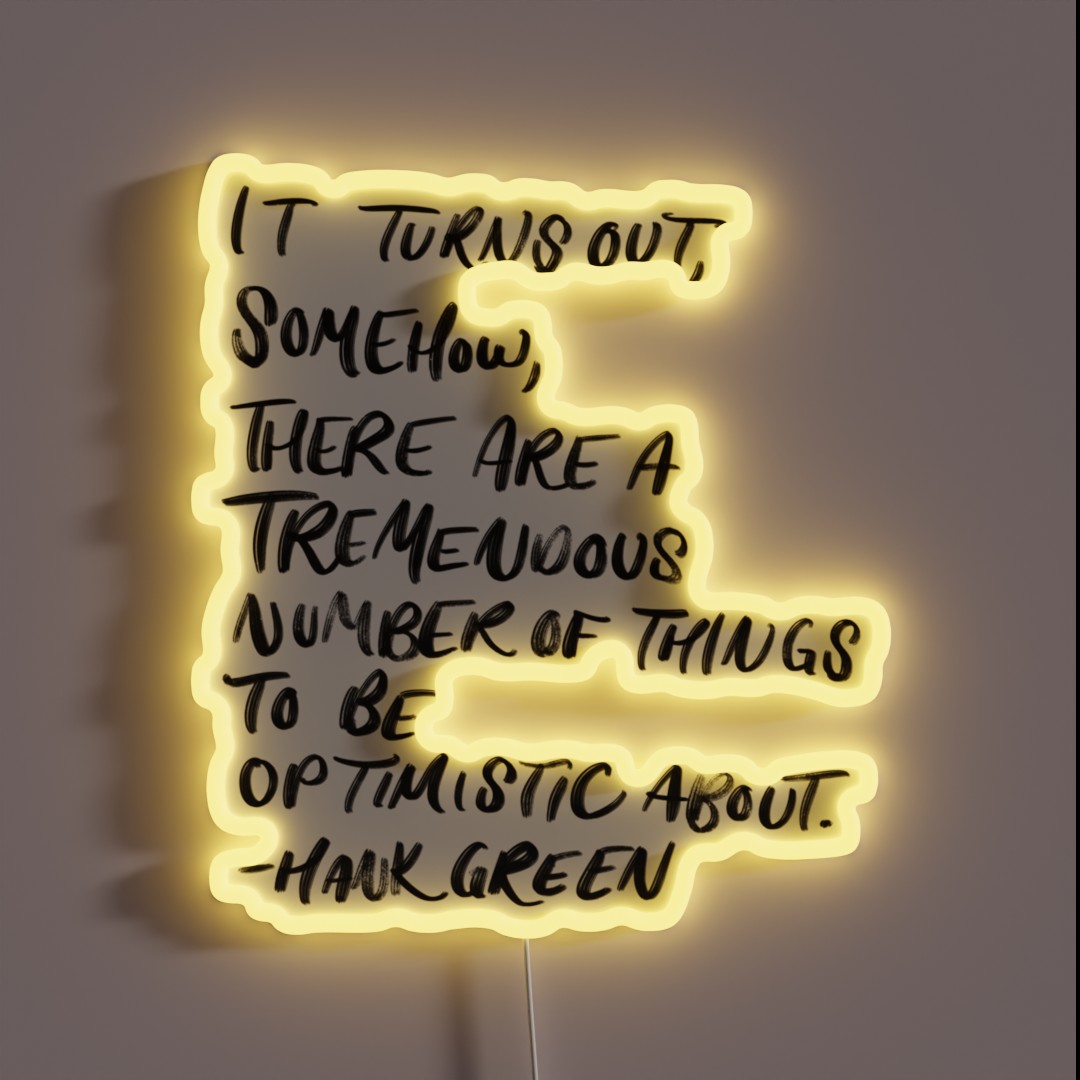 IT TURNS OUT,
SOMEHOW,
THERE ARE A
TREMENDOUS
NUMBER OF THINGS
TO BE
OPTIMISTIC ABOUT.
-HANK GREEN